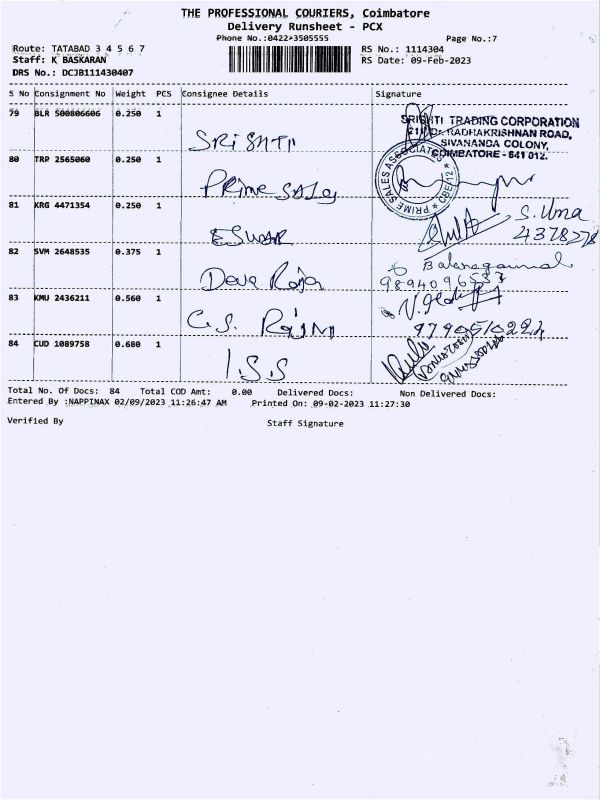 THE PROFESSIONAL COURIERS, Coimbatore
Delivery Runsheet - PCX
Phone No.:0422-3505555
Page No.:7
Route: TATABAD 3 4 5 6 7
RS No.: 1114304
Staff: K BASKARAN
RS Date: 09-Feb-2023
DRS No.: DCJB111430407
S No Consignment No Weight PCS Consignee Details Signature
79 BLR 500806606 0.250 1 SRISHTI
SRISHTI TRADING CORPORATION
RADHAKRISHNAN ROAD,
SIVANANDA COLONY,
COIMBATORE - 641 012.
80 TRP 2565060 0.250 1 Prime Sales
PRIME SALES ASSOCIATES CBE-12
81 KRG 4471354 0.250 1 ESWAR
S. Uma
4378278
82 SVM 2648535 0.375 1 Deva Raja
9894096587
83 KMU 2436211 0.560 1 G.S. Rajm
84 CUD 1089758 0.680 1 I.S.S
Total No. Of Docs: 84 Total COD Amt: 0.00 Delivered Docs: Non Delivered Docs:
Entered By :NAPPINAX 02/09/2023 11:26:47 AM Printed On: 09-02-2023 11:27:30
Verified By Staff Signature